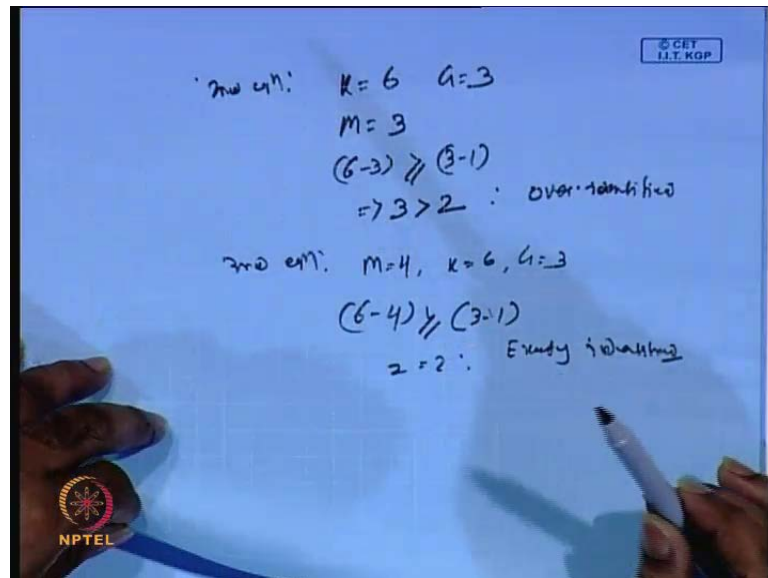 © CET
I.I.T. KGP
2nd eqn: K = 6 G = 3
M = 3
(6-3) ⩾ (3-1)
=> 3 > 2 : over identified
3rd eqn: M=4, K=6, G=3
(6-4) ⩾ (3-1)
2 = 2 : Exactly identified
NPTEL